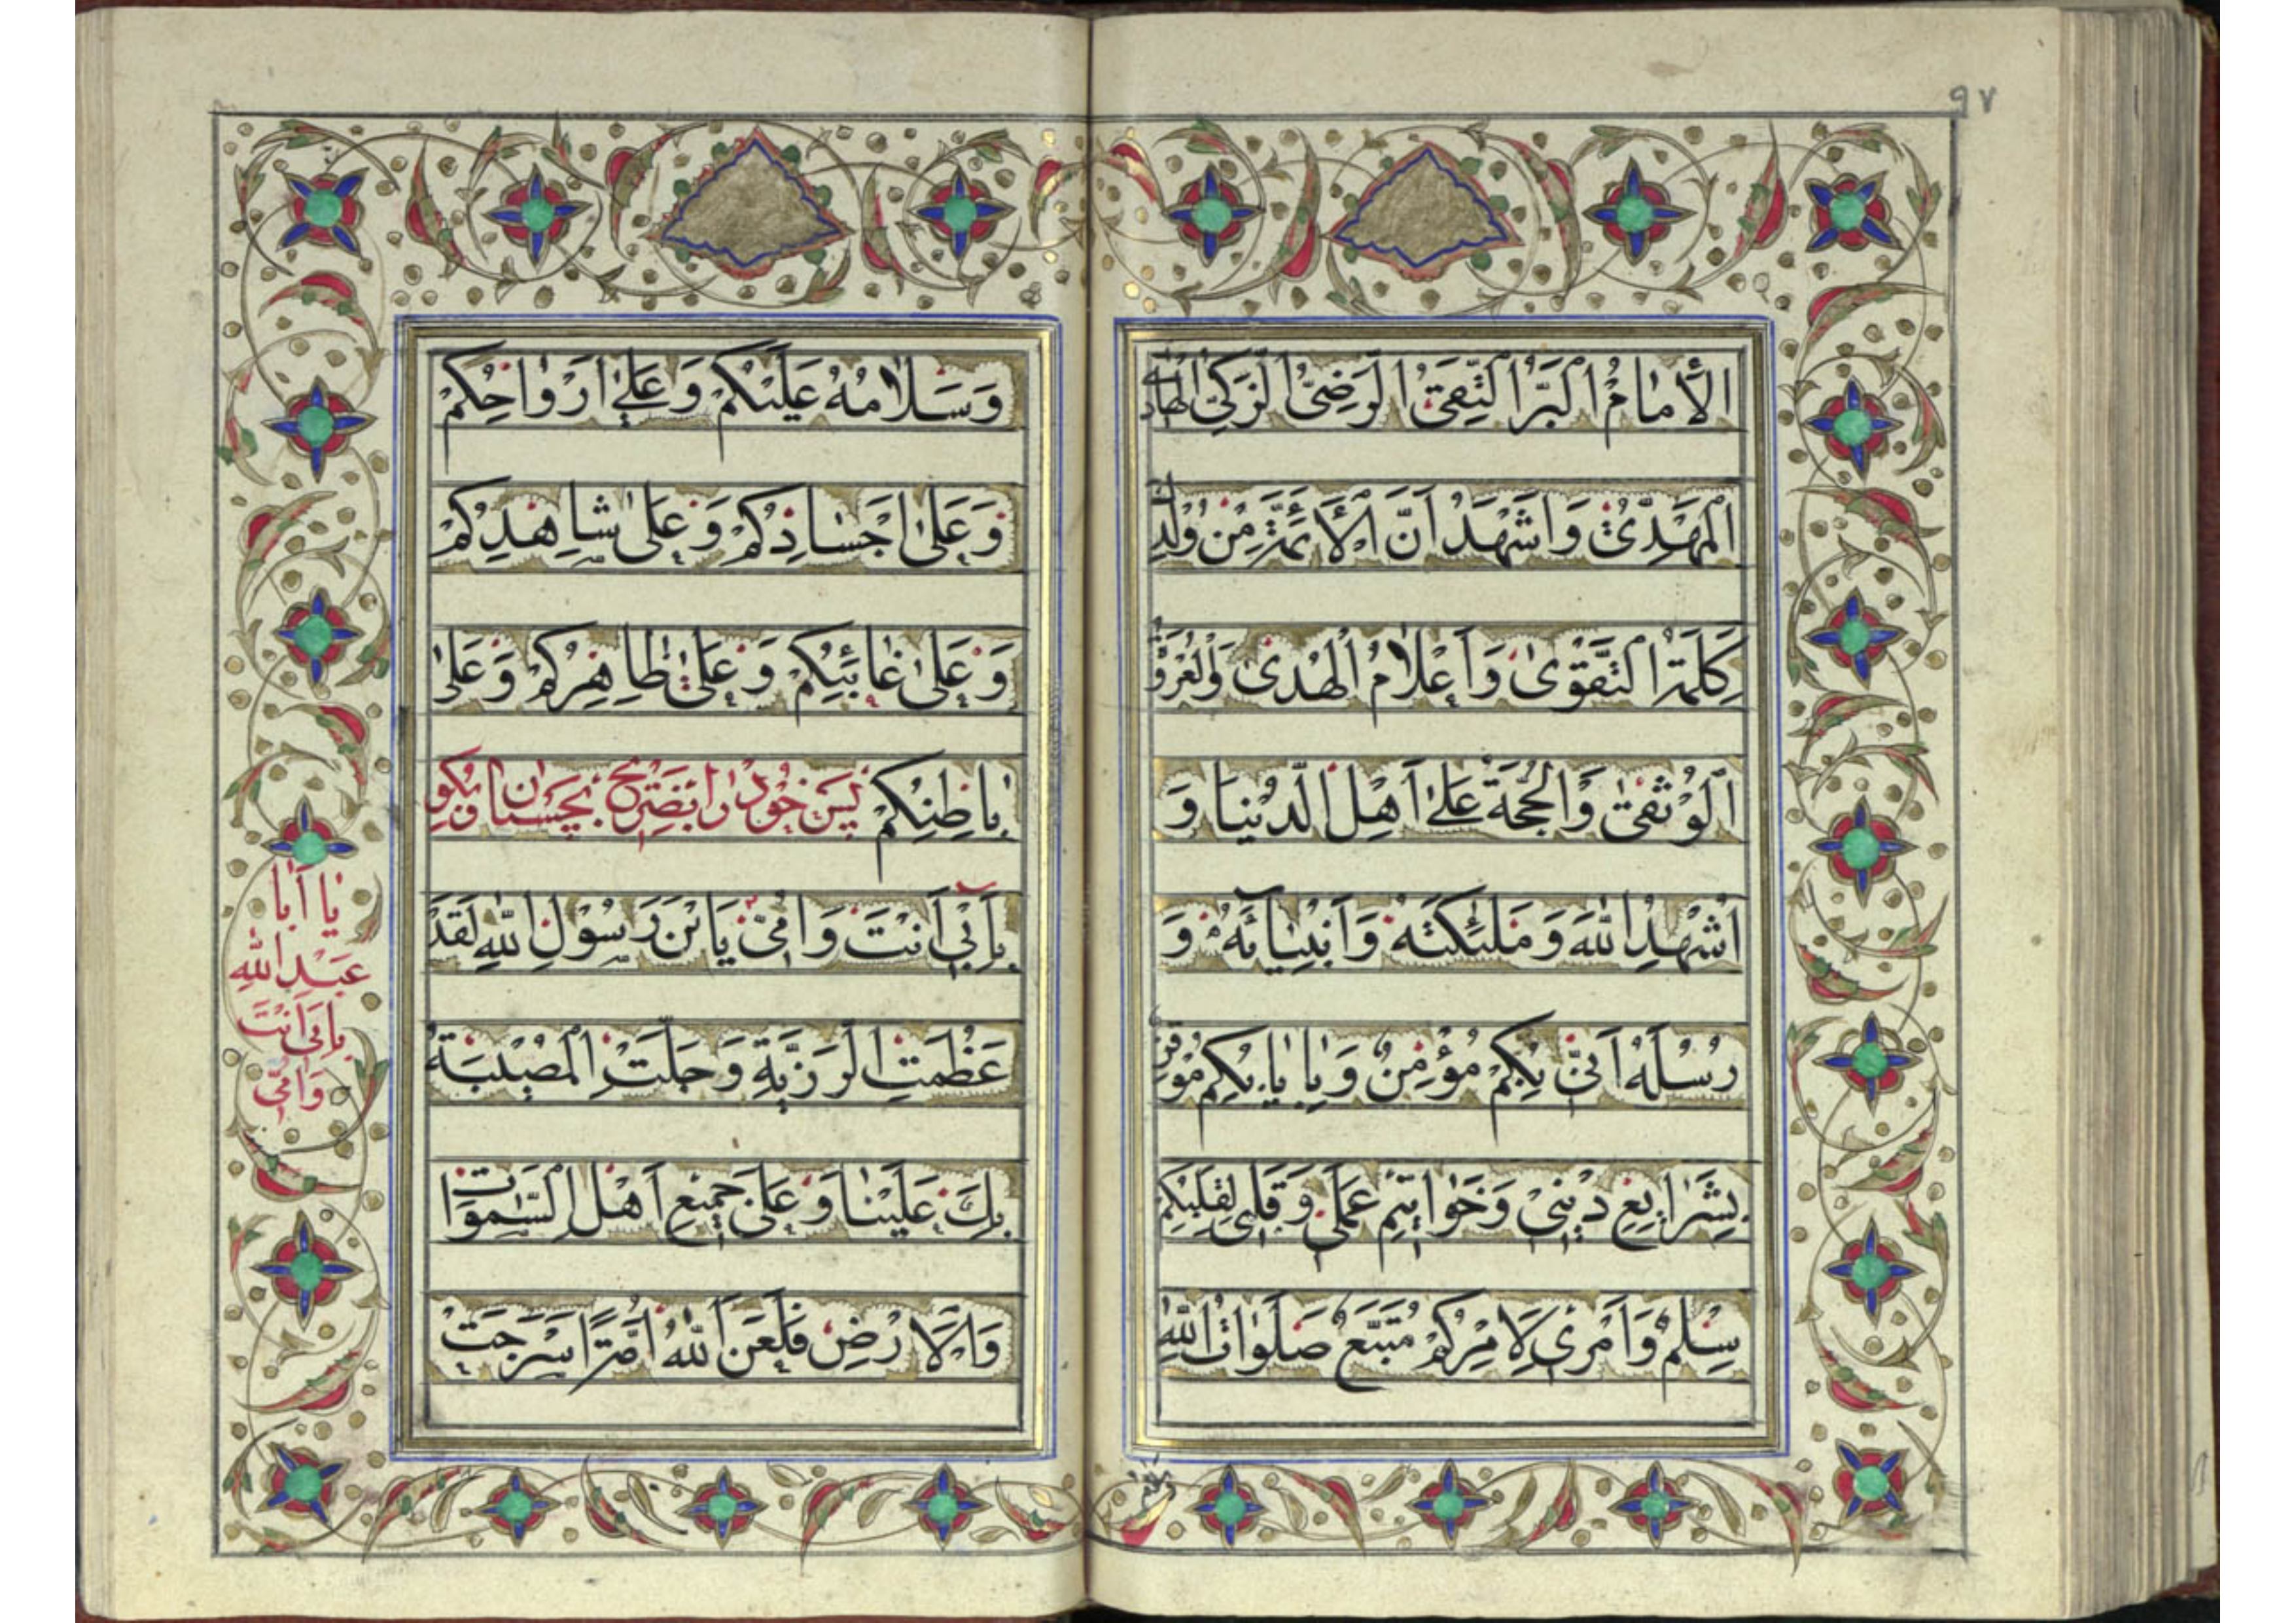 ٩٧
الأمامُ البَرُّ التَّقِىُّ الرَّضِىُّ الزَّكِىُّ الهادِى
المَهْدِىُّ وَاَشْهَدُ اَنَّ الأَئِمَّةَ مِنْ وُلْدِكَ
كَلِمَةُ التَّقْوىٰ وَاَعْلامُ الْهُدىٰ وَالْعُرْوَةُ
الْوُثْقىٰ وَالْحُجَّةُ عَلىٰ اَهْلِ الدُّنْيا وَ
اُشْهِدُ اللهَ وَمَلٰئِكَتَهُ وَاَنْبِيائَهُ وَ
رُسُلَهُ اَنّى بِكُمْ مُؤْمِنٌ وَبِاِيابِكُمْ مُوقِنٌ
بِشَرايِعِ دِينِى وَخَواتِيمِ عَمَلِى وَقَلْبِى لِقَلْبِكُمْ
سِلْمٌ وَاَمْرِى لِاَمْرِكُمْ مُتَّبِعٌ صَلَواتُ اللهِ
وَسَلامُهُ عَلَيْكُمْ وَعَلىٰ اَرْواحِكُمْ
وَعَلىٰ اَجْسادِكُمْ وَعَلىٰ شاهِدِكُمْ
وَعَلىٰ غائِبِكُمْ وَعَلىٰ ظاهِرِكُمْ وَعَلىٰ
باطِنِكُمْ پس خود را بضريح بچسبان وبگو
بِاَبِى اَنْتَ وَاُمّى يَابْنَ رَسُولِ اللهِ لَقَدْ
عَظُمَتِ الرَّزِيَّةُ وَجَلَّتِ الْمُصِيبَةُ
بِكَ عَلَيْنا وَعَلىٰ جَمِيعِ اَهْلِ السَّمٰواتِ
وَالْاَرْضِ فَلَعَنَ اللهُ اُمَّةً اَسْرَجَتْ
يا اَبا
عَبْدِ اللهِ
بِاَبِى اَنْتَ
وَاُمّى